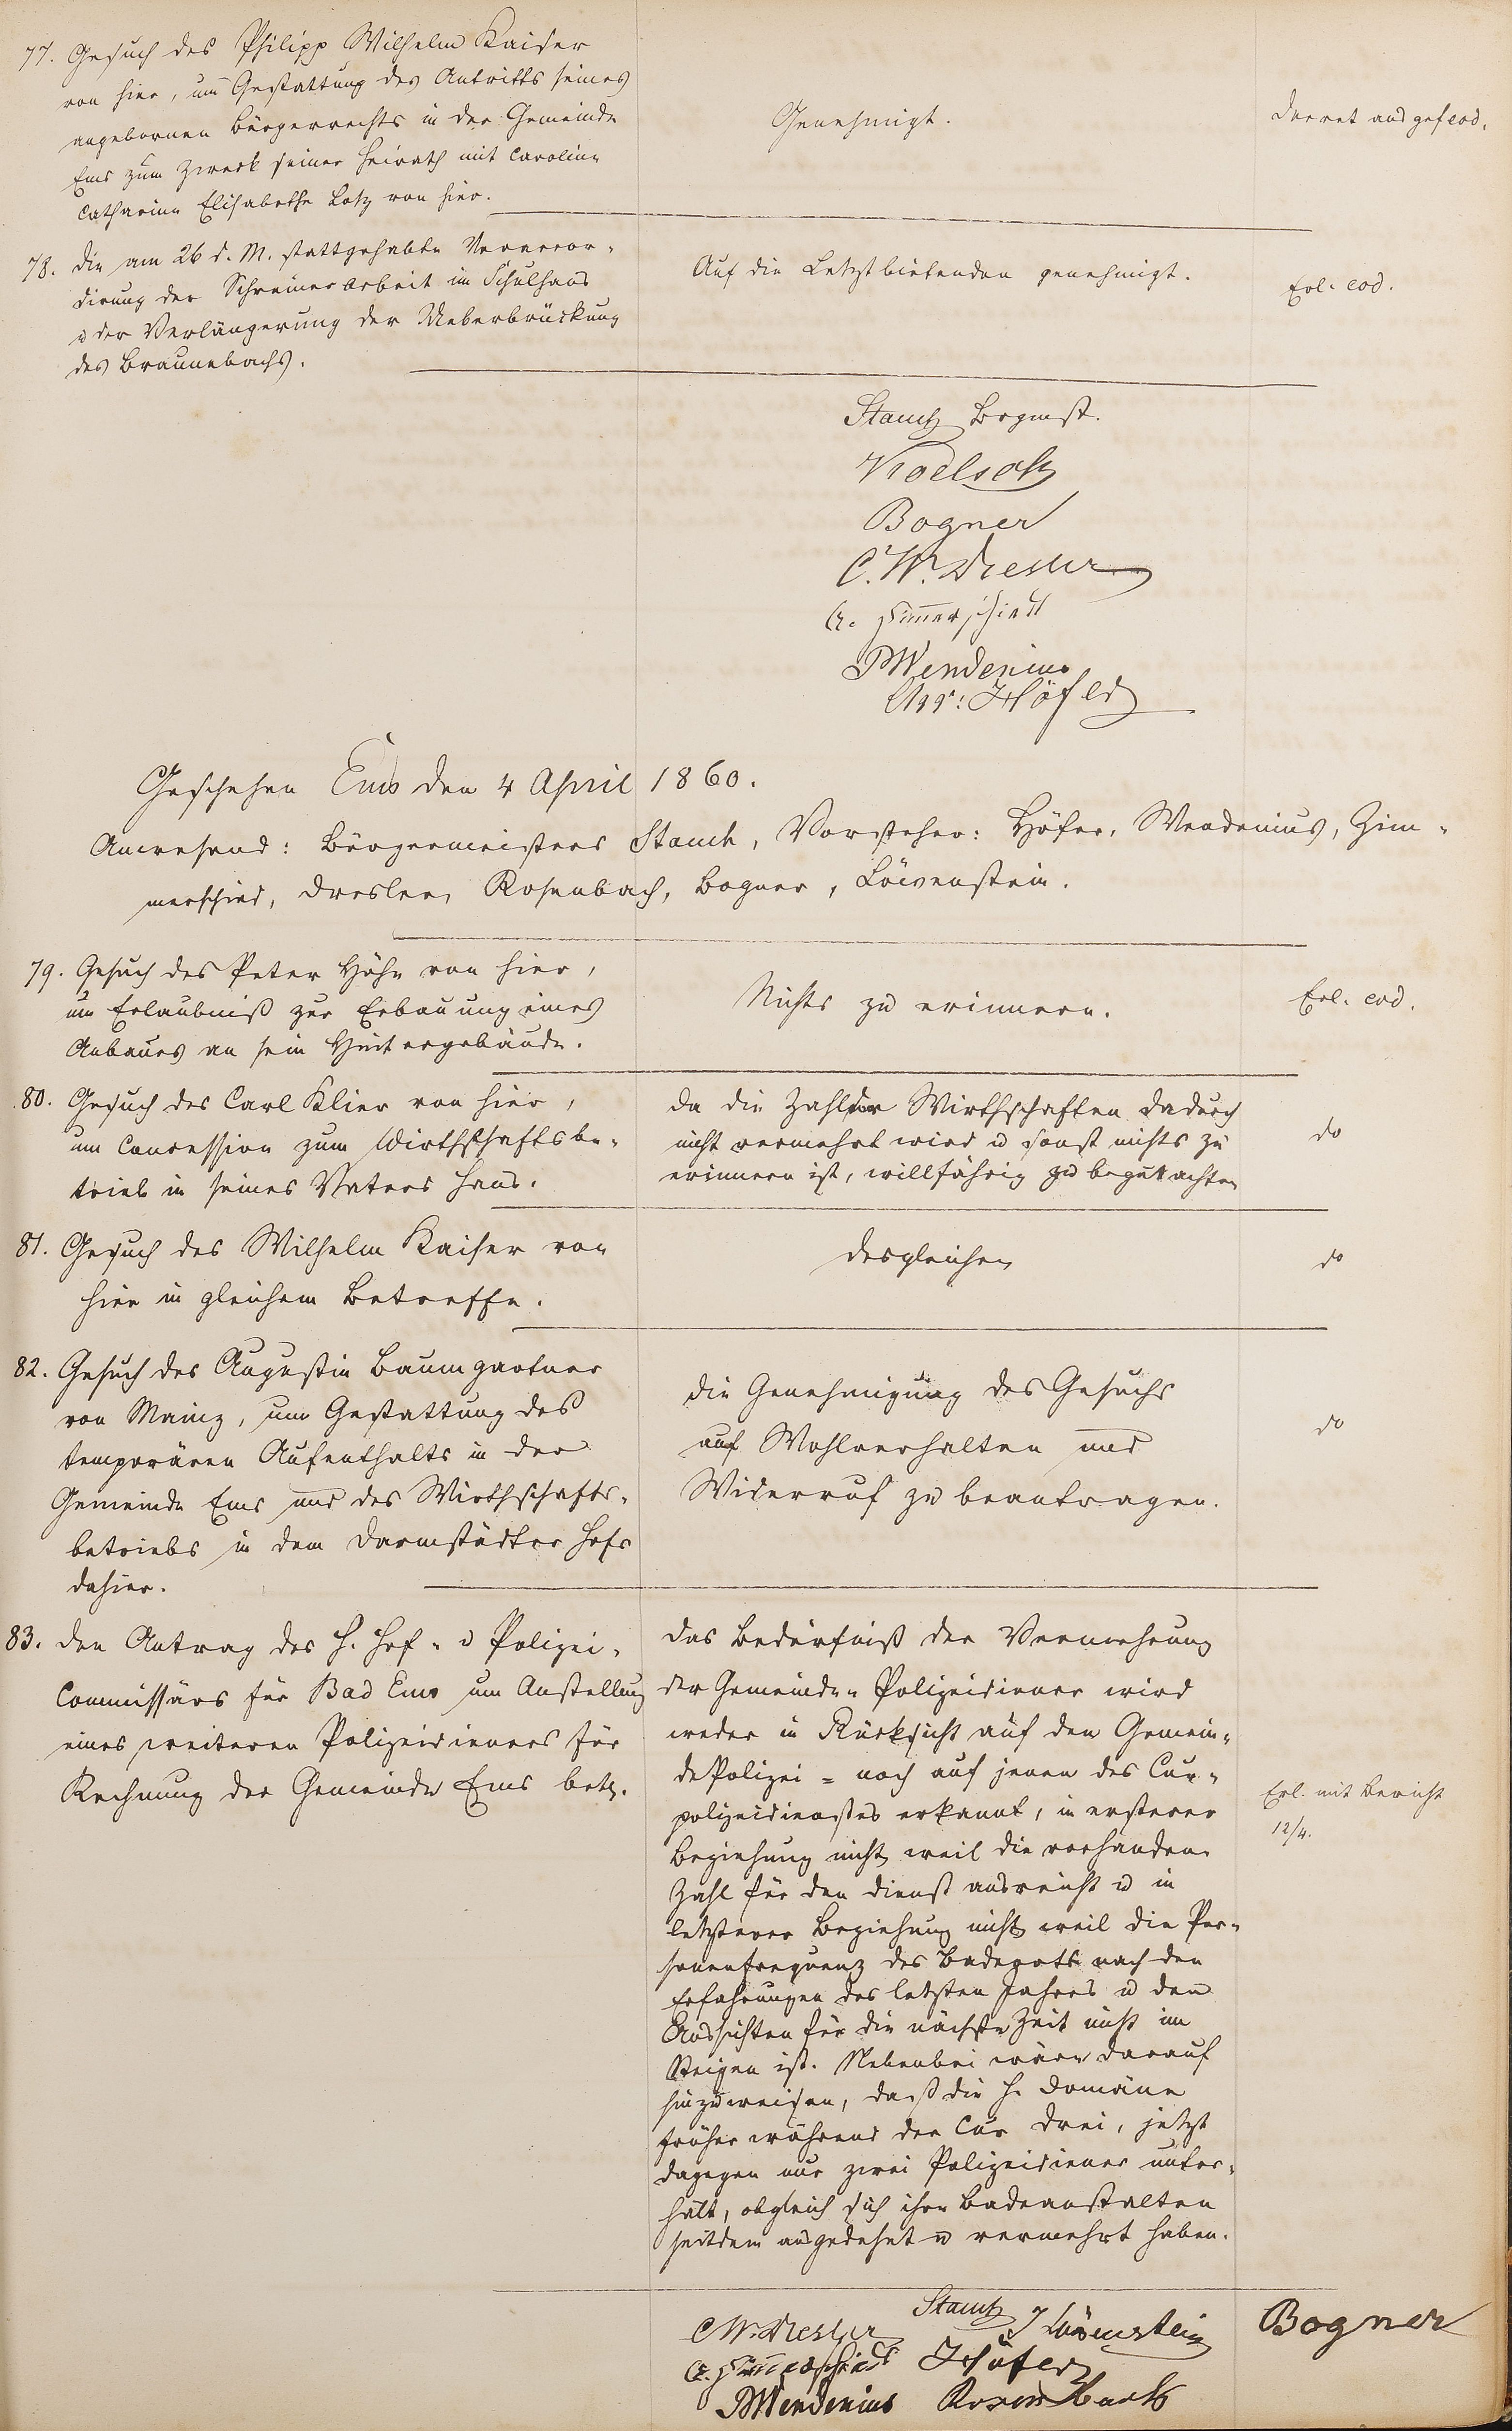 77. Gesuch des Philipp Wilhelm Kaiser
von hier, um Gestattung des Antritts seines
angebornen Bürgerrechts in der Gemeinde
Ems zum Zweck seiner Heirath mit Caroline
Catharine Elisabethe Lotz von hier.
Genehmigt.
Decret ausgef eod.
78. Die am 26 d. M. stattgehabte Veraccor-
dirung der Schreinerarbeit im Schulhaus
u der Verlängerung der Ueberbrückung
des Braunebachs.
Auf die Letztbietenden genehmigt.
Erl. eod.
Stauch Brgmst.
Noelsch
Bogner
C. W. Dresler
C. Zimmerschied
P Wendenius
Chr: Höfer
Geschehen Ems den 4 April 1860.
Anwesend: Bürgermeisters Stauch, Vorsteher: Höfer, Wendenius, Zim-
merschied, Dresler, Rosenbach, Bogner, Löwenstein.
79. Gesuch des Peter Höhn von hier,
um Erlaubniß zur Erbauung eines
Anbaues an sein Hintergebäude.
Nichts zu erinnern.
Erl. eod.
80. Gesuch des Carl Klier von hier,
um Concession zum Wirthschaftsbe-
trieb in seines Vaters Haus.
Da die Zahl der Wirthschaften dadurch
nicht vermehrt wird u sonst nichts zu
erinnern ist, willfährig zu begutachten
do
81. Gesuch des Wilhelm Kaiser von
hier in gleichem Betreffe.
desgleichen
do
82. Gesuch des Augustin Baumgartner
von Mainz, um Gestattung des
temporären Aufenthalts in der
Gemeinde Ems und des Wirthschafts-
betriebs in dem Darmstädter Hofe
dahier.
die Genehmigung des Gesuchs
auf Wohlverhalten und
Widerruf zu beantragen.
do
83. Den Antrag des H. Hof- u Polizei-
Commissärs für Bad Ems um Anstellung
eines weiteren Polizeidieners für
Rechnung der Gemeinde Ems betr.
Das Bedürfniß der Vermehrung
der Gemeinde-Polizeidiener wird
weder in Rücksicht auf den Gemein-
dePolizei- noch auf jenen des Cur-
polizeidienstes erkannt, in ersterer
Beziehung nicht weil die vorhandene
Zahl für den Dienst ausreicht u in
letzterer Beziehung nicht weil die Per-
sonenfrequenz des Badeorts nach den
Erfahrungen des letzten Jahres u den
Aussichten für die nächste Zeit nicht im
Steigen ist. Nebenbei wäre darauf
hinzuweisen, daß die H. Domäne
früher während der Cur drei, jetzt
dagegen nur zwei Polizeidiener unter-
hält, obgleich sich ihre Badeanstalten
seitdem ausgedehnt u vermehrt haben.
Erl. mit Bericht
12/4.
Stauch
C W. Dresler J Löwenstein Bogner
C. Zimmerschied Höfer
P Wendenius Rosenbach